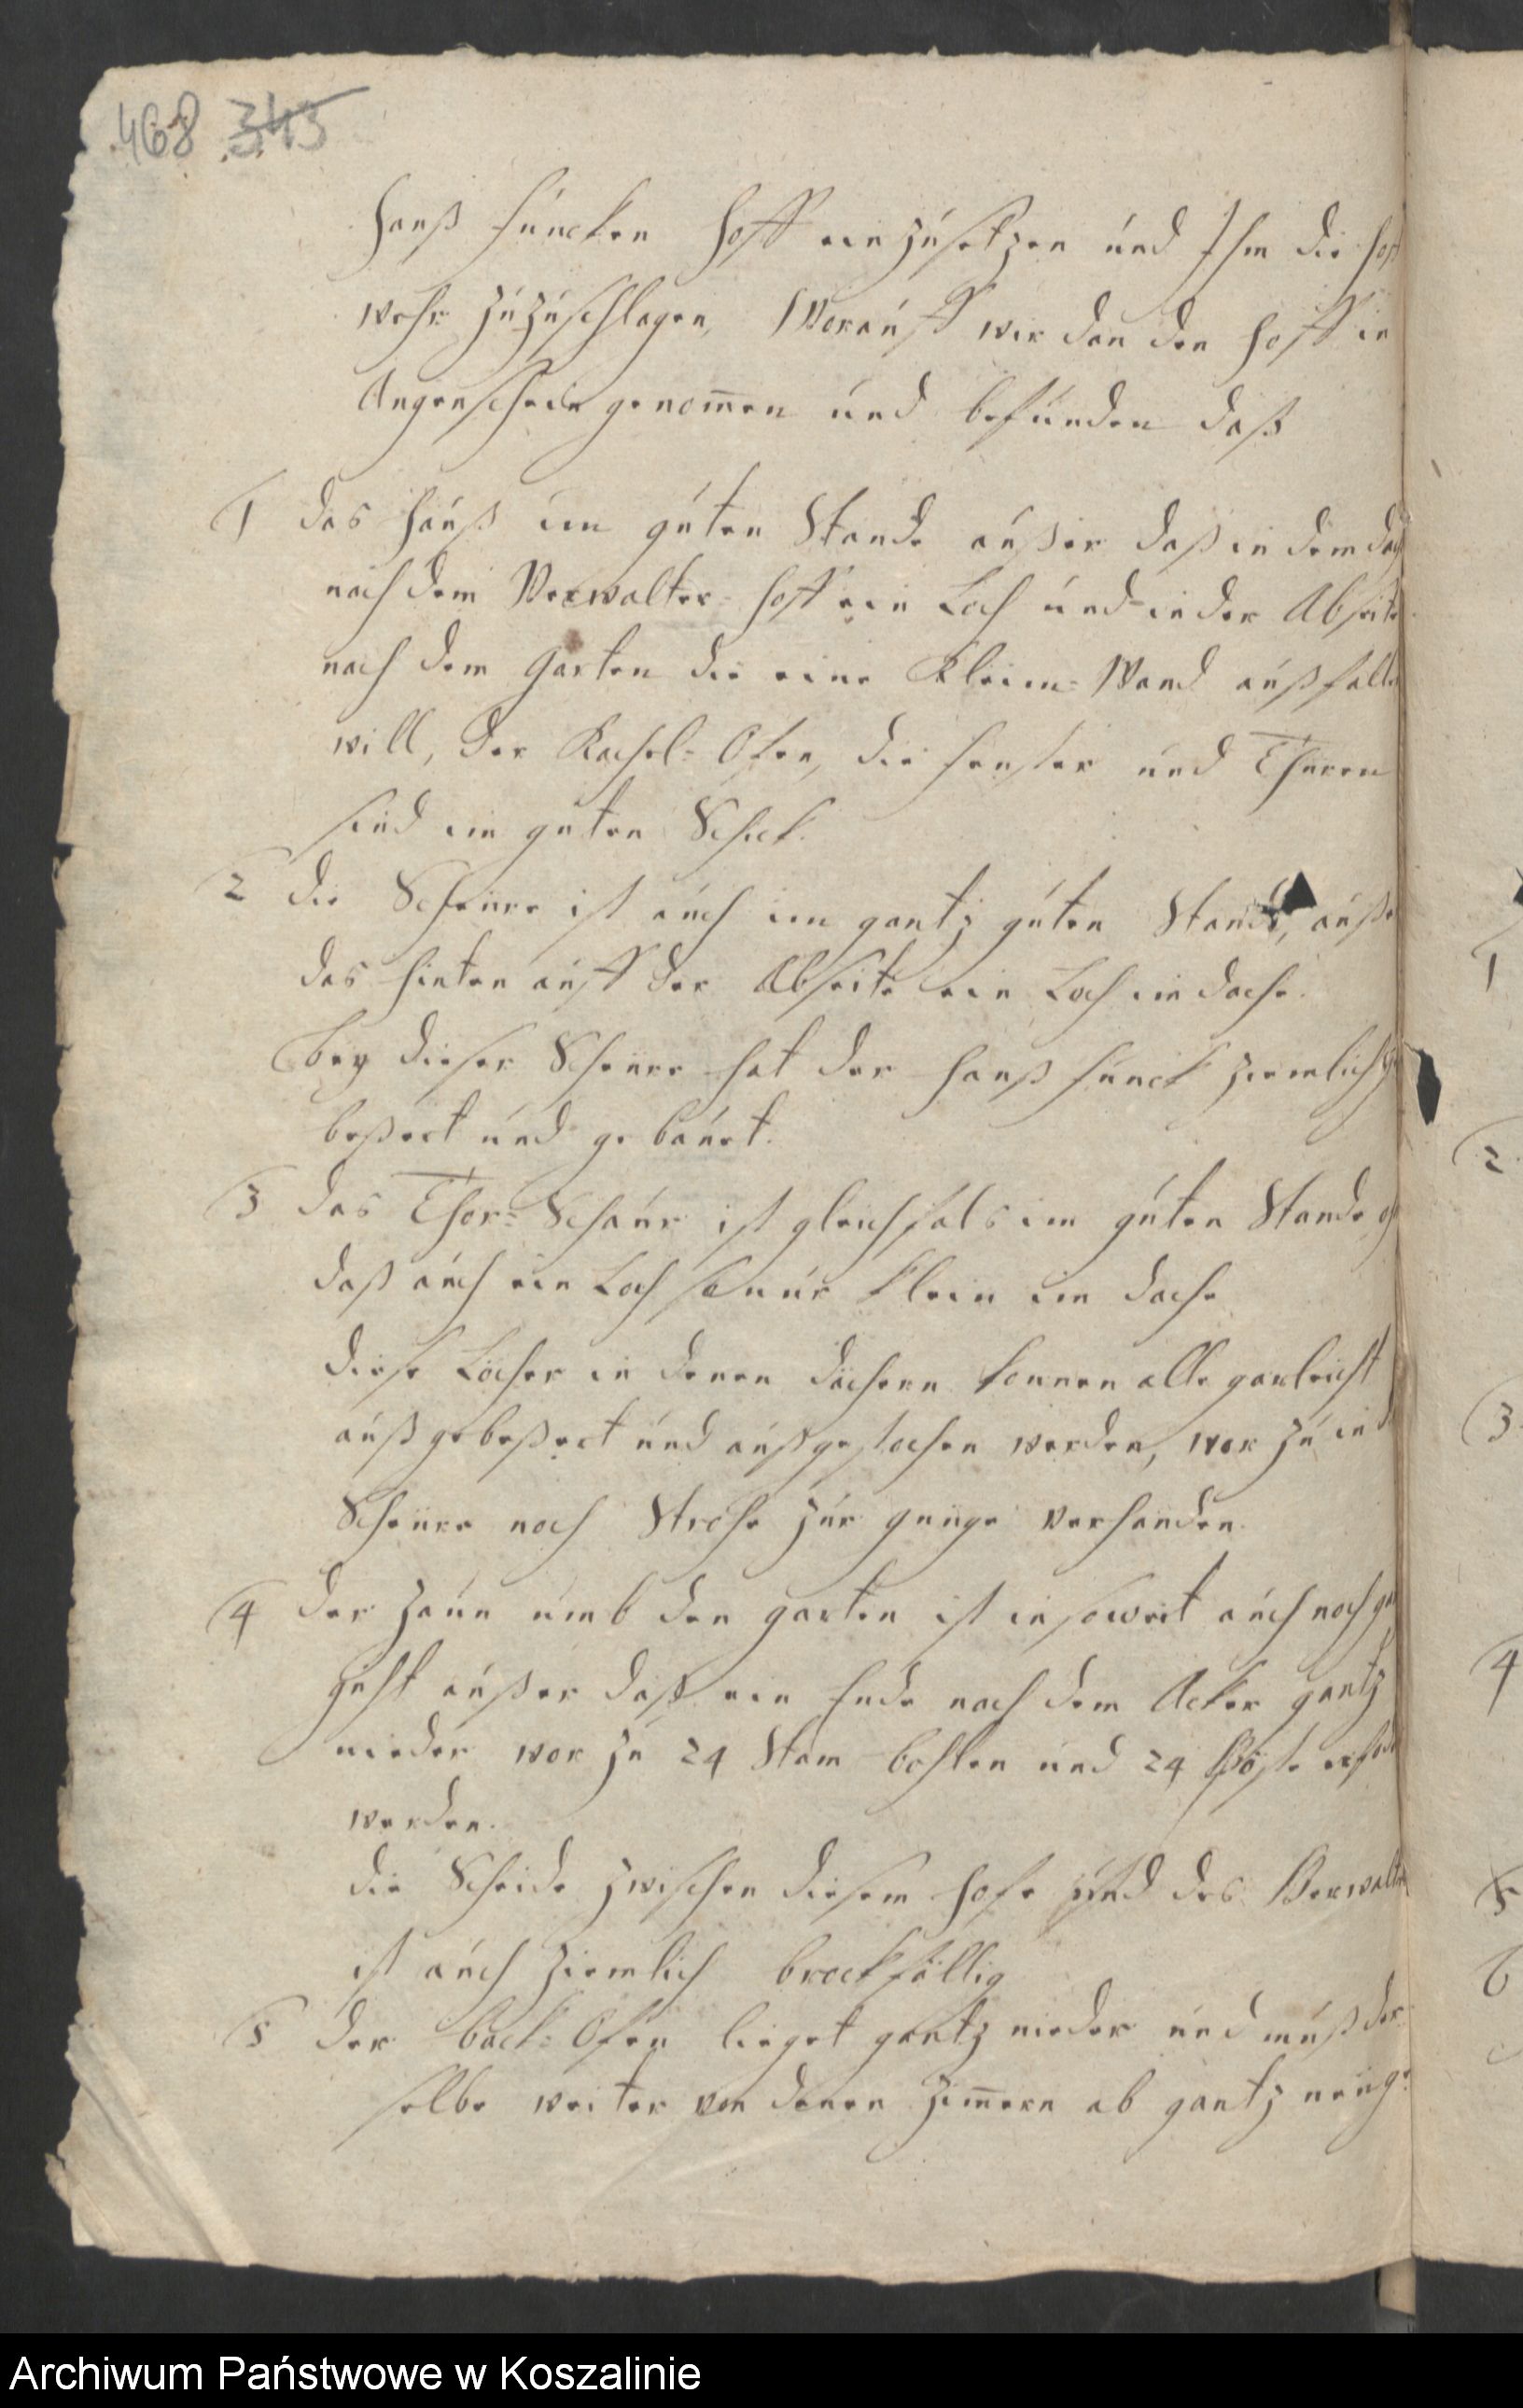 468 343
Hanß Füncken Hoff einzúsetzen únd Ihm die Hoff
wehr zúzúschlagen, Woraúff wir dan den Hoff in
Augenschein genom̄en únd befúnden daß
1 das Haúß im gúten Stande aúßer daß in dem dach
nach dem Verwalter-Hoff ein Loch únd in der Abseite
nach dem Garten die eine Kleim-Wand aúßfallen
will, der Kachel-Ofen, die Fenster und Thüren
sind im guten Schick.
2 die Scheúne ist aúch im gantz gúten Stande, aúßer
das hinten aúff der Abseite ein Loch im dache.
bey dieser Scheune hat der Hanß Fúnck ziemlich ge
beßert únd gebaúet.
3 das Thor-Schaúer ist gleichfals im gúten Stande
daß aúch ein Loch so núr klein im dache
diese Löcher in denen dächern können alle gar leicht
aúßgebeßert únd aúßgestochen werden, wor zú in der
Scheune noch Strohe zúr genüge verhanden.
4 der Zaún úmb den garten ist in so weit aúch noch gut
aúßer daß ein Ende nach dem Acker gantz
nieder wor zu 24 Stam bohlen und 24
werden.
die Scheide zwischen diesem Hofe únd des Verwalters
ist aúch ziemlich brockfällig
5 der back-Ofen lieget gantz nieder únd múß der
selbe weiter von denen Zim̄ern ab gantz neú ge
1
2
3
4
5
6
Archiwum Państwowe w Koszalinie